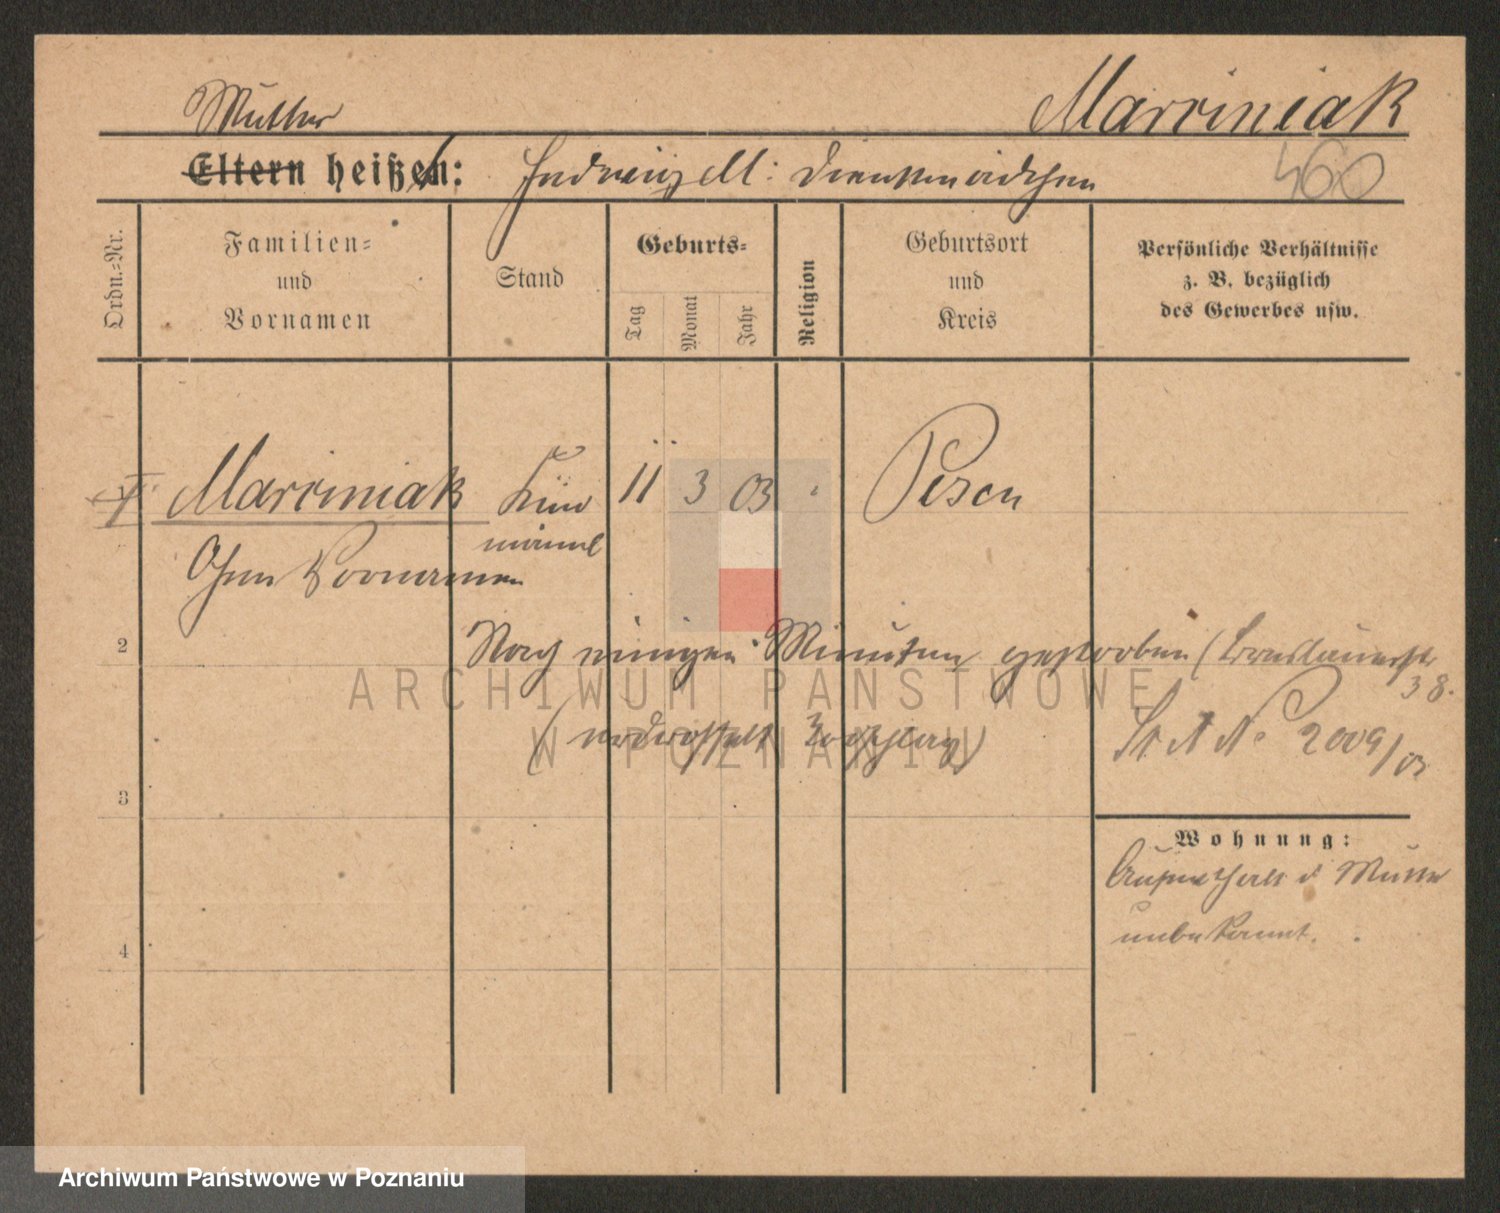 Mutter
Marciniak
460
Eltern heißen: Hedwig M: Dienstmädchen
Ordn.-Nr.
Familien-
und
Vornamen
Stand
Geburts-
Tag
Monat
Jahr
Religion
Geburtsort
und
Kreis
Persönliche Verhältnisse
z. B. bezüglich
des Gewerbes usw.
Marciniak Kind 11 3 03 Posen
männl
Ohne Vornamen
2
Nach einigen Minuten gestorben (
38.
St A No 2009/03
3
Wohnung:
Aufenthalt d Mutter
unbekannt.
4
ARCHIWUM PAŃSTWOWE
W POZNANIU
Archiwum Państwowe w Poznaniu